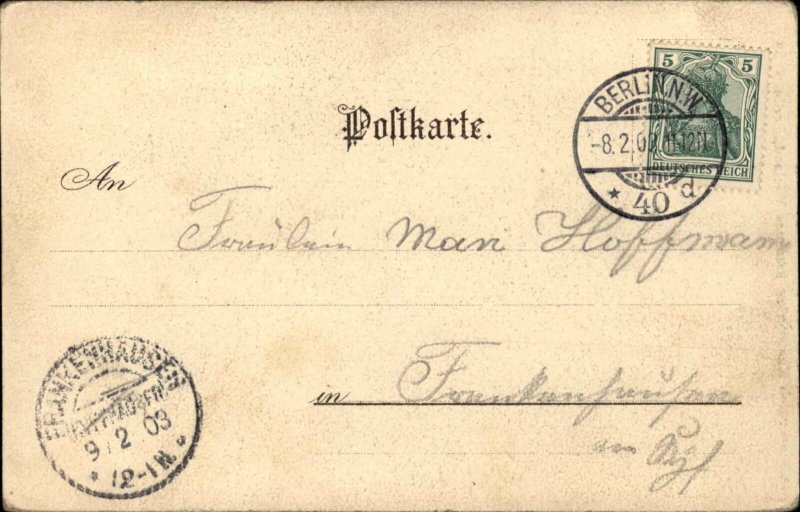 5 5
DEUTSCHES REICH
BERLIN N.W.
-8.2.03. 11-12N.
* 40 d
Postkarte.
An
Fräulein Hoffmann
in Frankenhausen
am Kyf
FRANKENHAUSEN
(KYFFHÄUSER)
9. 2 03
* 12-1N. *